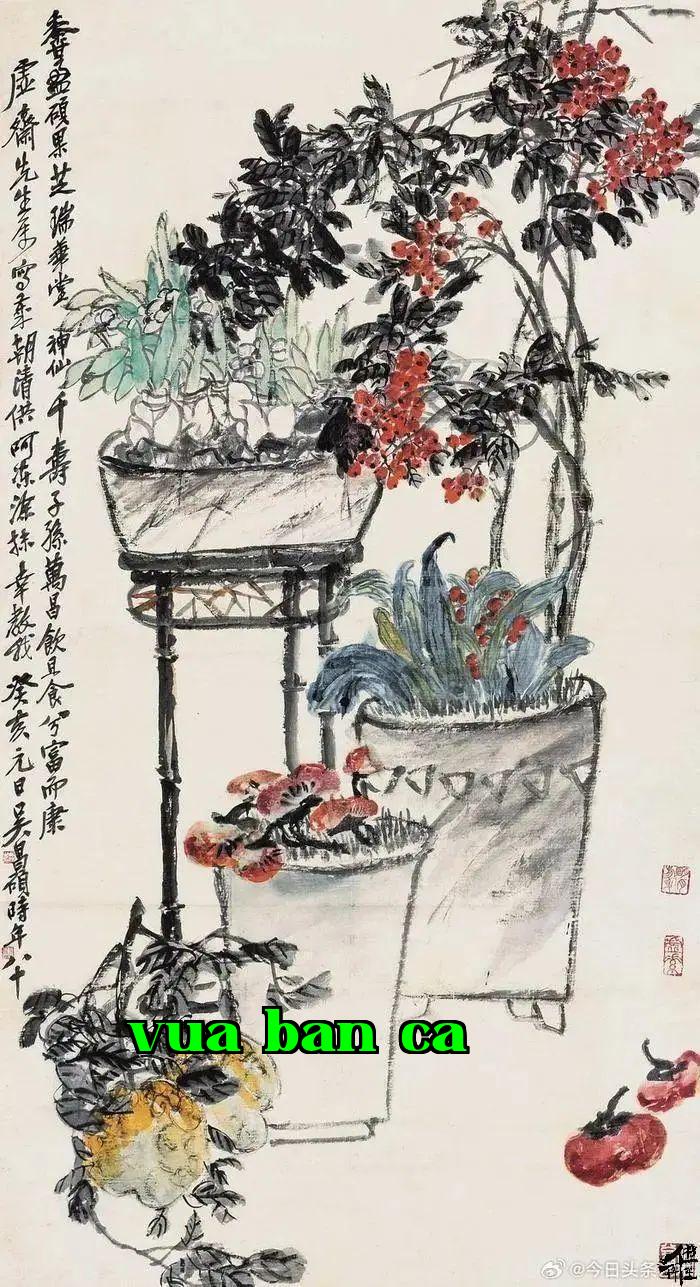 碩果芝瑞華堂神仙千壽子孫萬昌飲且食兮富而康
虛齋先生寫歲朝清供呵凍塗抹幸教我癸亥元日吳昌碩時年八十
vua ban ca
@今日头条